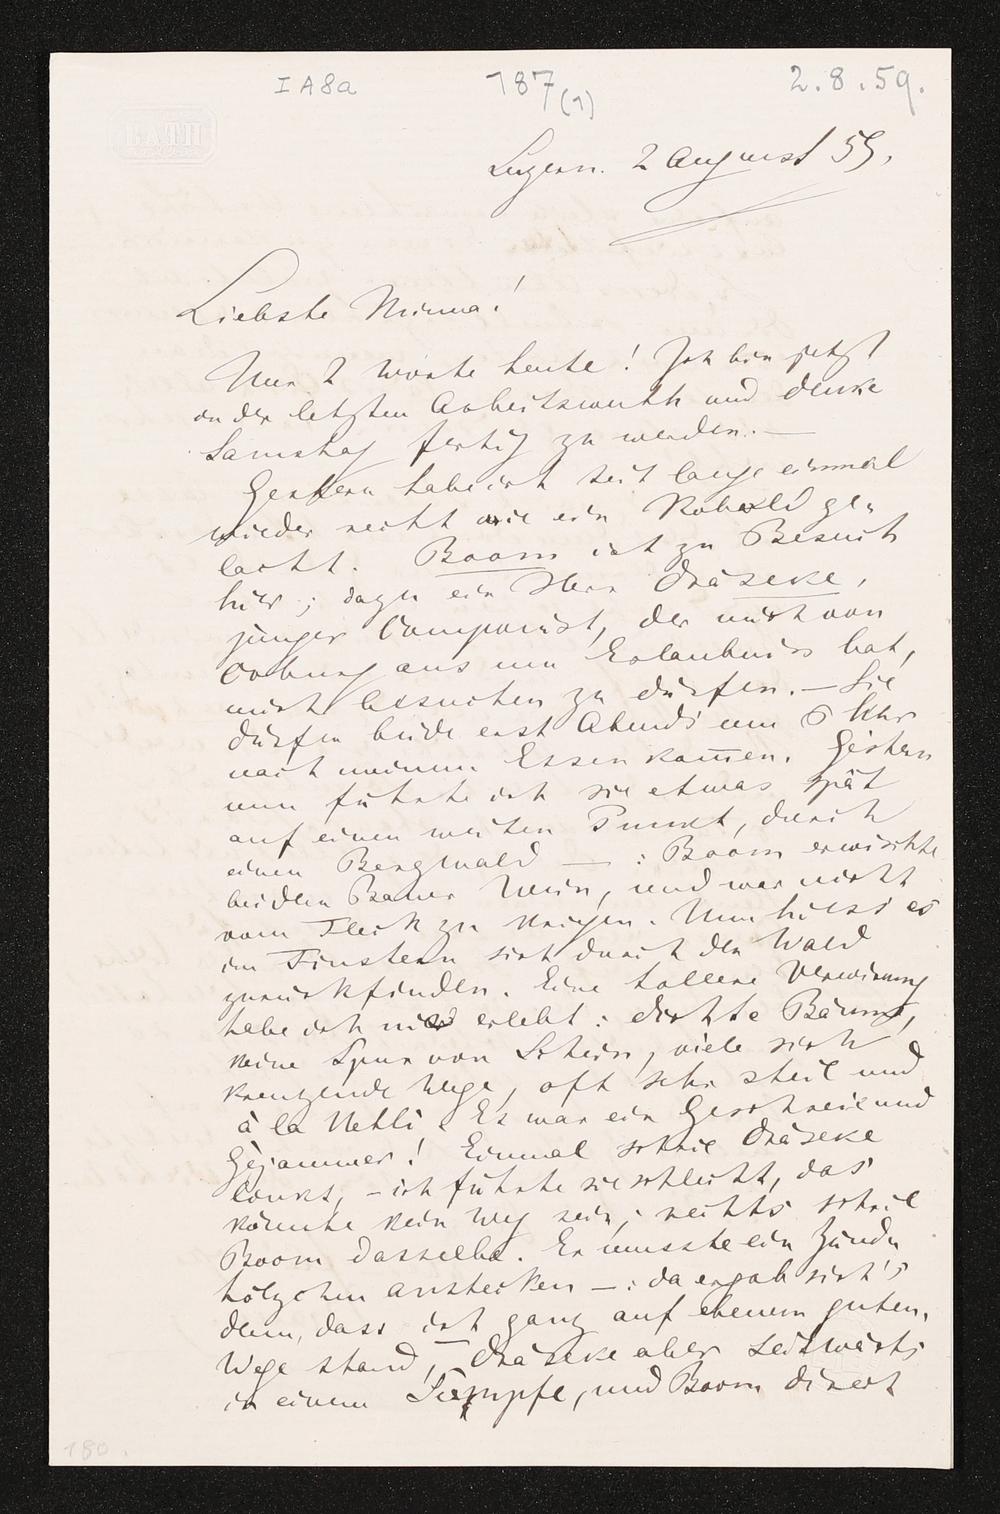 I A8a 187(1) 2.8.59.
BATH
Luzern. 2 August 59.
Liebste Minna!
Nur 2 Worte heute! Ich bin jetzt
in der letzten Arbeitswuth und denke
Samstag fertig zu werden. —
Gestern habe ich seit lange einmal
wieder recht wie ein Kobold ge-
lacht. Baom ist zu Besuch
hier; dazu ein Herr Dräseke,
junger Componist, der mich von
Coburg aus um Erlaubniss bat,
mich besuchen zu dürfen. — Sie
dürfen beide erst Abends um 6 Uhr
nach meinem Essen kom̄en. Gestern
nun führte ich sie etwas spät
auf einen weiten Punkt, durch
einen Bergwald — : Baom erwischte
bei dem Bauer Wein, und war nicht
vom Fleck zu kriegen. Nun hiess es
im Finstern sich durch den Wald
zurückfinden. Eine tollere Verwirrung
habe ich nie erlebt: dichte Bäume,
keine Spur von Schein, viele sich
kreuzende Wege, oft sehr steil und
à la Uetli. Es war ein Geschrei und
Gejammer! Einmal schrie Dräseke
links, – ich führte sie schlecht, das
könnte kein Weg sein; rechts schrie
Baom dasselbe. Er musste ein Zünd-
hölzchen anstecken — : da ergab sich's
denn, dass ich ganz auf ebenem guten,
Wege stand, Dräseke aber seitwärts
in einem Sumpfe, und Baom direct
180.